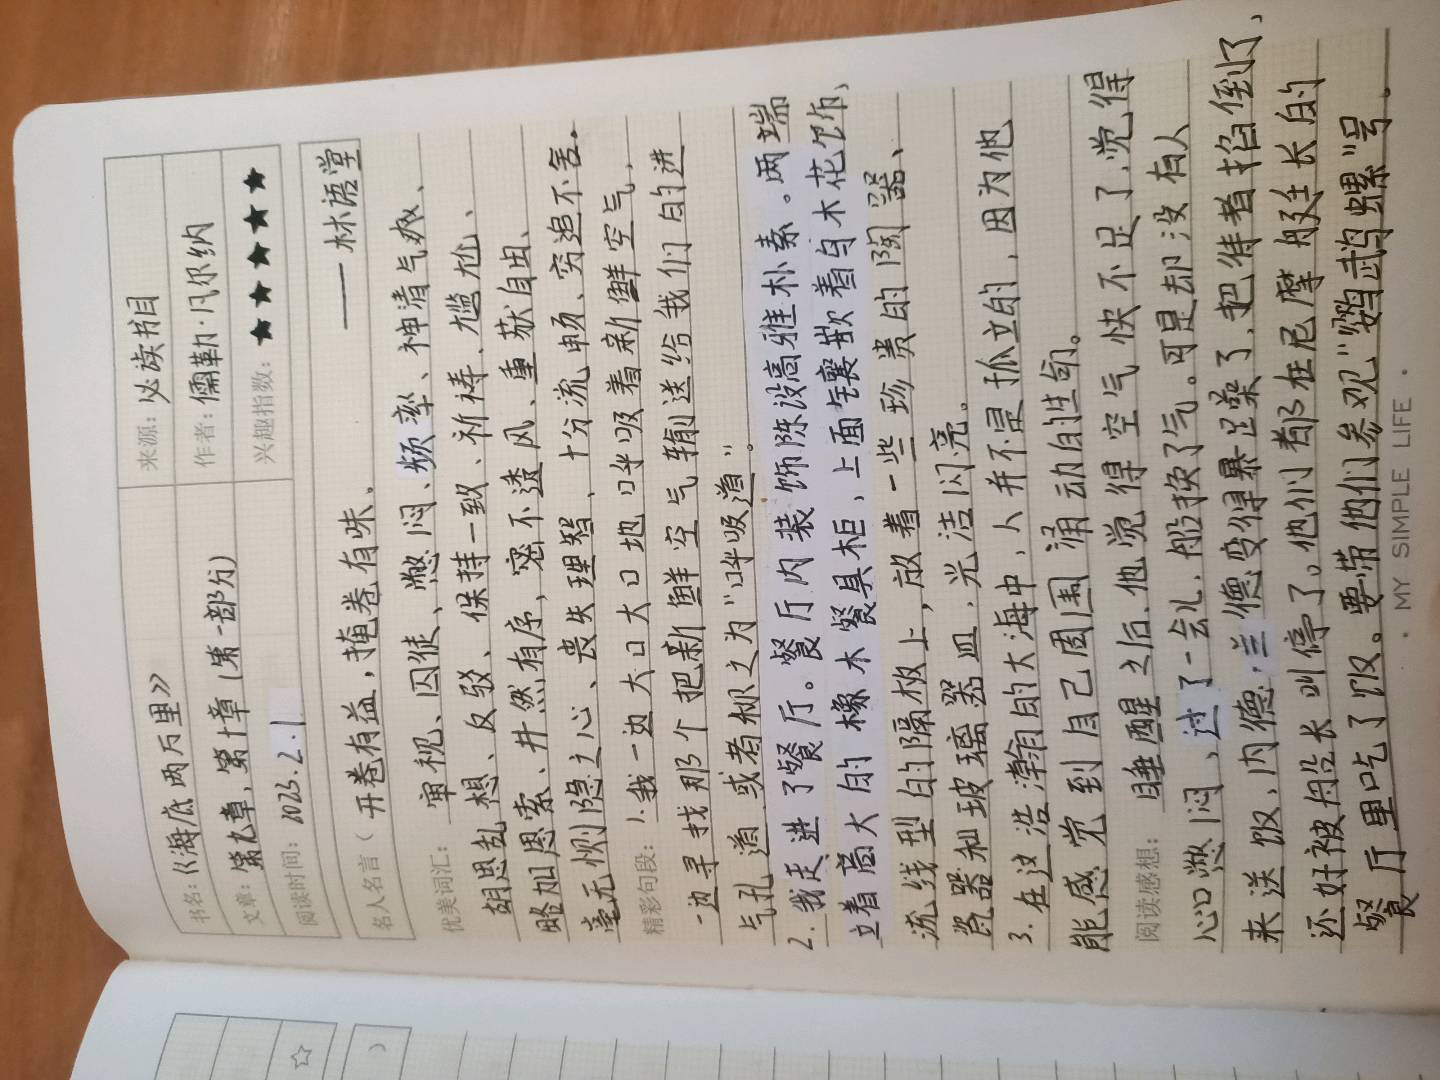 书名：《海底两万里》 来源：必读书目
文章：第九章、第十章（第一部分） 作者：儒勒·凡尔纳
阅读时间：2025.2.1 兴趣指数：★★★★★
名人名言（开卷有益，掩卷有味。 ——林语堂
优美词汇：审视、囚徒、憋闷、频率、神清气爽、
胡思乱想、反驳、保持一致、祈祷、尴尬、
略加思索、井然有序、密不透风、重获自由、
毫无恻隐之心、丧失理智、十分流畅、穷追不舍。
精彩句段：1.我一边大口大口地呼吸着新鲜空气，
一边寻找那个把新鲜空气输送给我们的进
气孔道或者称之为“呼吸道”。
2.我走进了餐厅。餐厅内装饰陈设高雅朴素。两端
立着高大的橡木餐具柜，上面镶嵌着乌木花饰、
流线型的隔板上，放着一些珍贵的陶器、
瓷器和玻璃器皿，光洁闪亮。
3.在这浩瀚的大海中，人并不是孤立的，因为他
能感觉到自己周围涌动的生命。
阅读感想：睡醒之后，他觉得空气快不足了，觉得
心口憋闷，过了一会儿，船换了气。可是却没有人
来送饭，内德·兰德变得暴躁了，把侍者掐倒了，
还好被船长叫停了。他们都在尼摩艇长的
餐厅里吃了饭。要带他们参观“鹦鹉螺”号。
· MY SIMPLE LIFE ·